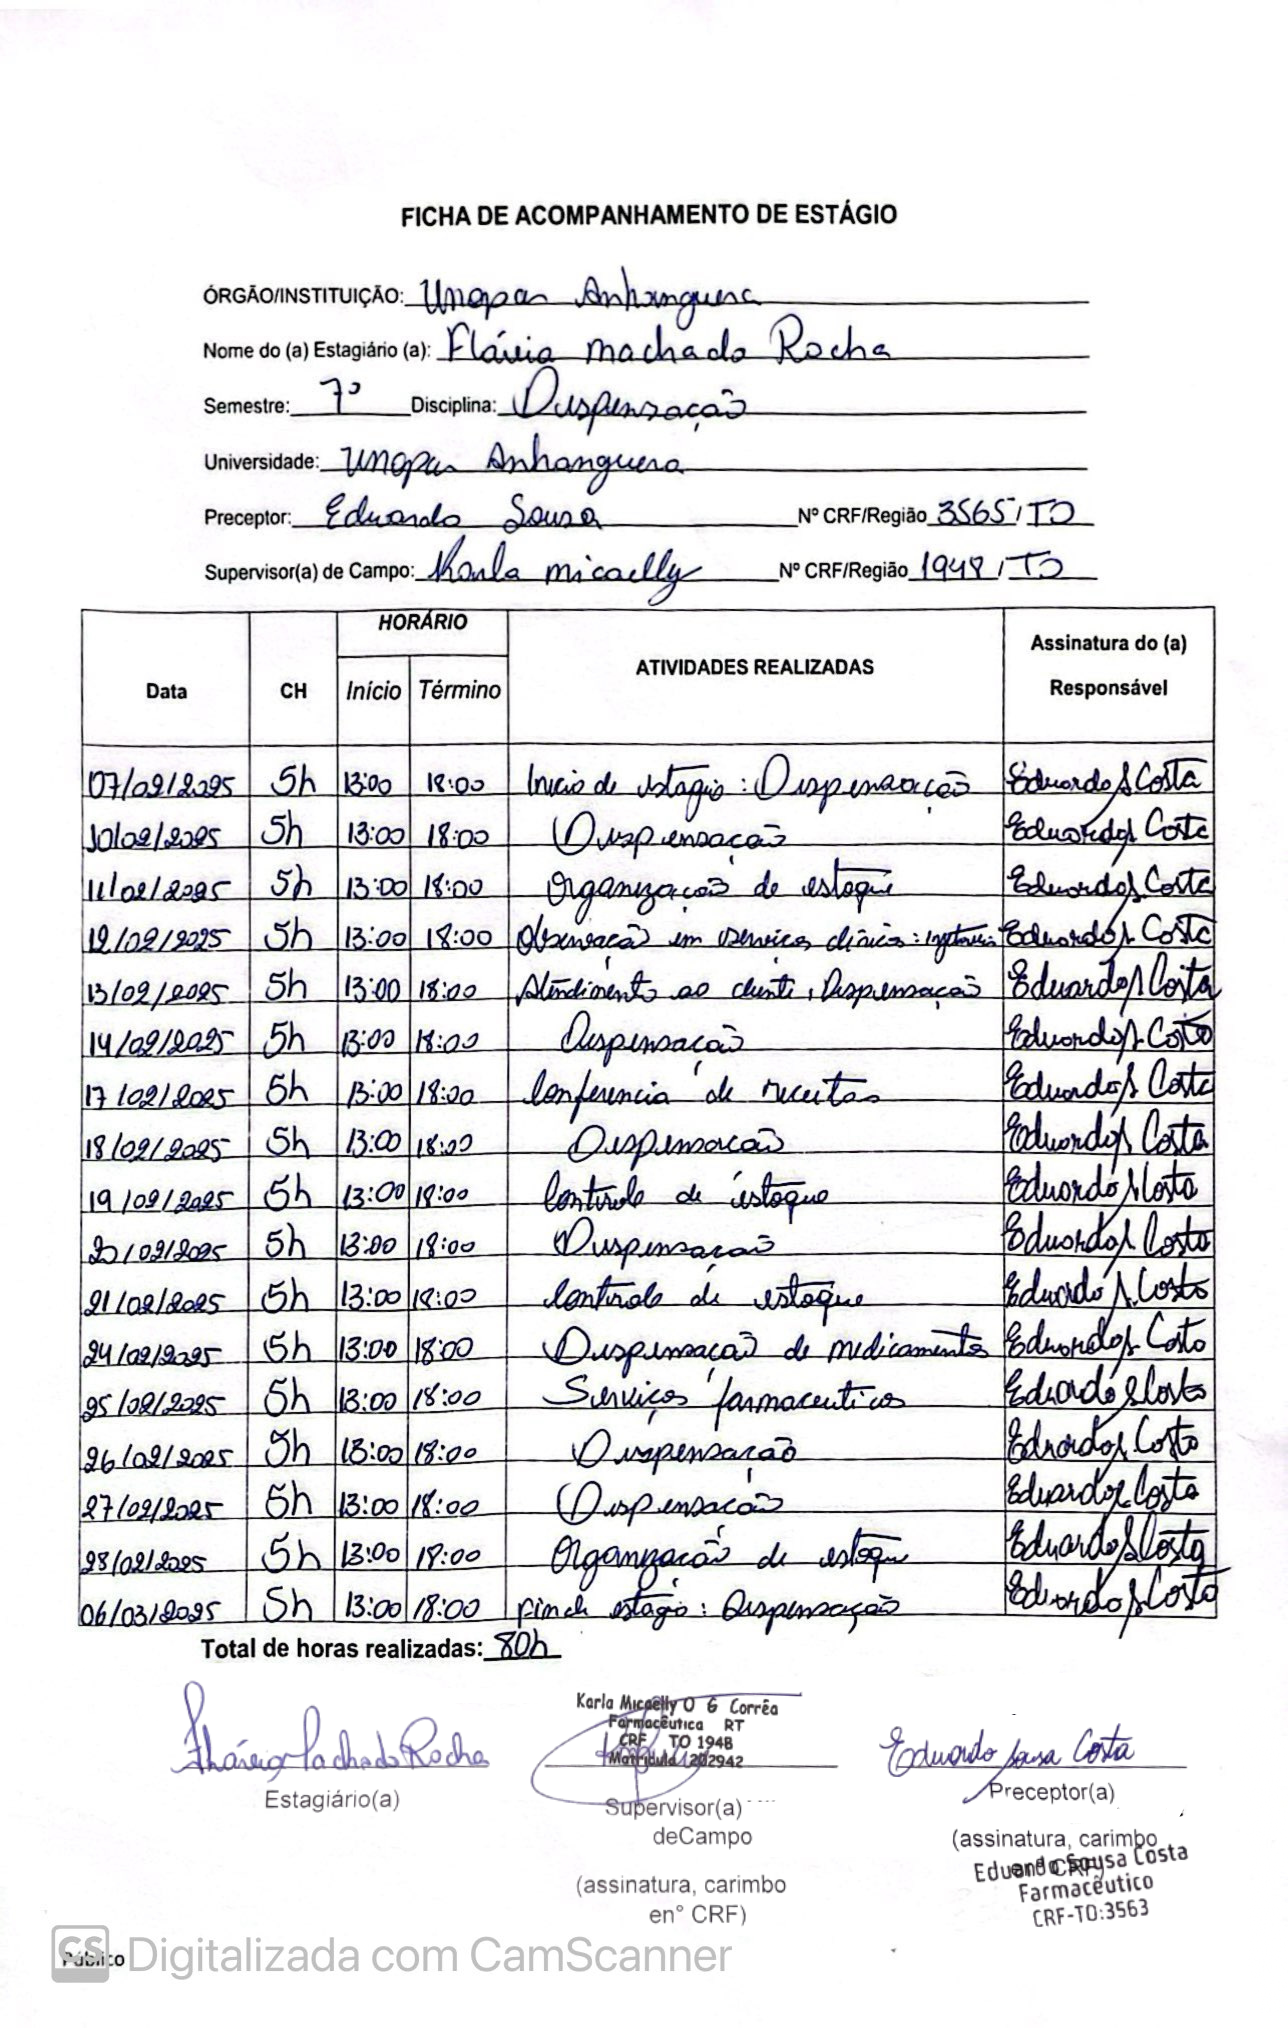 FICHA DE ACOMPANHAMENTO DE ESTÁGIO
ÓRGÃO/INSTITUIÇÃO: Unopar Anhanguera
Nome do (a) Estagiário (a): Flávia Machado Rocha
Semestre: 7º Disciplina: Dispensação
Universidade: Unopar Anhanguera
Preceptor: Eduardo Sousa Nº CRF/Região 3565/TO
Supervisor(a) de Campo: Karla Micaelly Nº CRF/Região 1948/TO
Data CH HORÁRIO Início Término ATIVIDADES REALIZADAS Assinatura do (a) Responsável
07/02/2025 5h 13:00 18:00 Inicio de estagio: Dispensação Eduardo S Costa
10/02/2025 5h 13:00 18:00 Dispensação Eduardo S. Costa
11/02/2025 5h 13:00 18:00 Organização de estoque Eduardo S. Costa
12/02/2025 5h 13:00 18:00 Observação em serviços clinicos: Eduardo S. Costa
13/02/2025 5h 13:00 18:00 Atendimento ao cliente, Dispensação Eduardo S Costa
14/02/2025 5h 13:00 18:00 Dispensação Eduardo S. Costa
17/02/2025 5h 13:00 18:00 Conferencia de receitas Eduardo S Costa
18/02/2025 5h 13:00 18:00 Dispensação Eduardo S. Costa
19/02/2025 5h 13:00 18:00 Controle de estoque Eduardo S Costa
20/02/2025 5h 13:00 18:00 Dispensação Eduardo S Costa
21/02/2025 5h 13:00 18:00 Controle de estoque Eduardo S. Costa
24/02/2025 5h 13:00 18:00 Dispensação de medicamentos Eduardo S. Costa
25/02/2025 5h 13:00 18:00 Serviços farmaceuticos Eduardo S Costa
26/02/2025 5h 13:00 18:00 Dispensação Eduardo S. Costa
27/02/2025 5h 13:00 18:00 Dispensação Eduardo S Costa
28/02/2025 5h 13:00 18:00 Organização de estoque Eduardo S Costa
06/03/2025 5h 13:00 18:00 Fim de estagio: Dispensação Eduardo S Costa
Total de horas realizadas: 80h
Karla Micaelly O G Corrêa
Farmacêutica RT
CRF TO 1948
Matrícula 202942
Flávia Machado Rocha
Eduardo Sousa Costa
Estagiário(a)
Supervisor(a)
deCampo
(assinatura, carimbo
en° CRF)
Preceptor(a)
(assinatura, carimbo
en° CRF)
Eduardo Sousa Costa
Farmacêutico
CRF-TO:3563
Público
CS Digitalizada com CamScanner